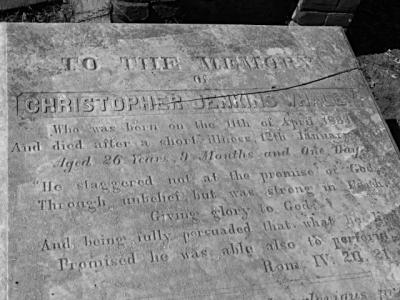 TO THE MEMORY
OF
CHRISTOPHER JENKINS
Who was born on the 11th of April
And died after a short illness 12th January
Aged 26 Years, 9 Months and One Day
"He staggered not at the promise of God
Through unbelief, but was strong in Faith
Giving glory to God;
And being fully persuaded that what he
Promised he was able also to perform
Rom. IV. 20, 21